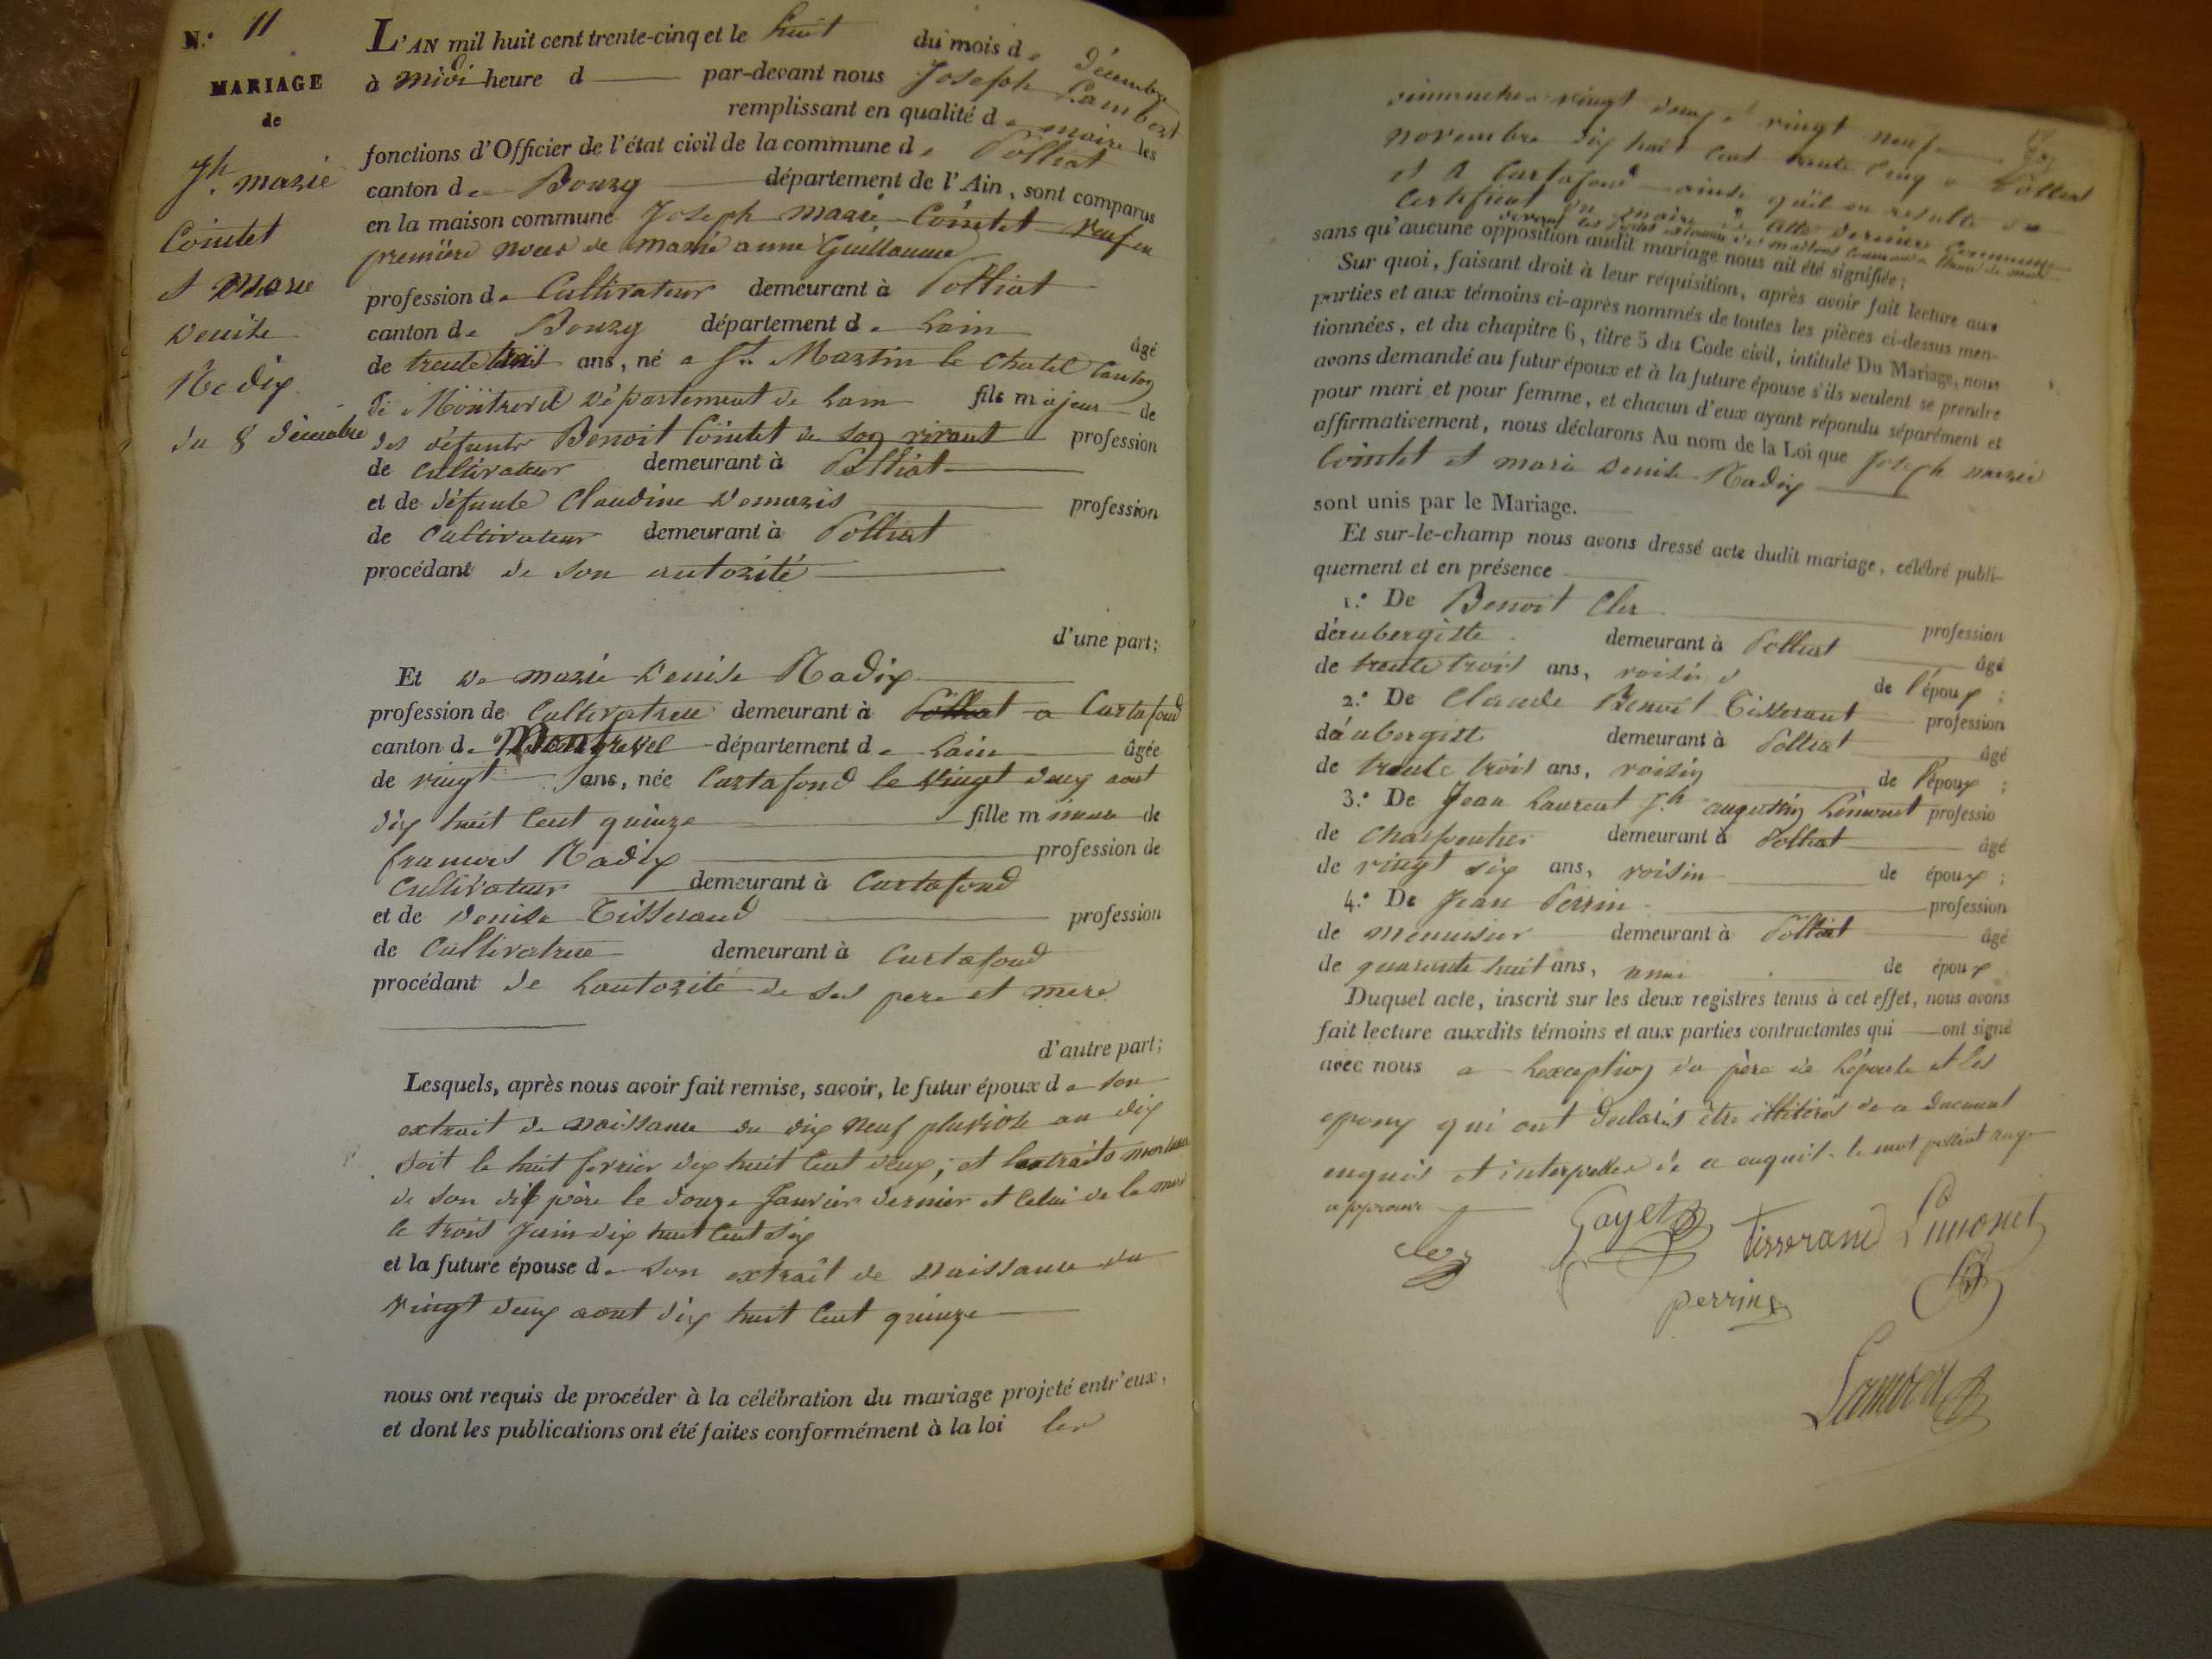 N.° 11
MARIAGE
de
Jh. marie
Cointet
et Marie
denise
Radix
du 8 décembre
L'AN mil huit cent trente-cinq et le huit du mois de décembre
à midi heure d par-devant nous Joseph Lambert
remplissant en qualité de maire les
fonctions d'Officier de l'état civil de la commune de Polliat
canton de Bourg département de l'Ain, sont comparus
en la maison commune Joseph marie Cointet veuf en
première noces de marie anne Guillaume
profession de Cultivateur demeurant à Polliat
canton de Bourg département de Lain âgé
de trente trois ans, né a St. Martin le Chatel Canton
de Montrevel département de Lain fils majeur de
des défunts Benoit Cointet de son vivant profession
de cultivateur demeurant à Polliat
et de défunte Claudine demaris profession
de Cultivateur demeurant à Polliat
procédant de son autorité
d'une part;
Et de marie denise Radix
profession de Cultivatrice demeurant à Polliat a Curtafond
canton de Montrevel département de Lain âgée
de vingt ans, née Curtafond le vingt deux aout
dix huit cent quinze fille mineure de
francois Radix profession de
Cultivateur demeurant à Curtafond
et de denise Tisserand profession
de Cultivatrice demeurant à Curtafond
procédant de Lautorité de ses pere et mere
d'autre part;
Lesquels, après nous avoir fait remise, savoir, le futur époux de son
extrait de naissance du dix neuf pluviose an dix
soit le huit fevrier dix huit cent deux; et Lextraits mortuaire
de son dit père le douze Janvier dernier et celui de la mere
le trois Juin dix huit cent six
et la future épouse de son extrait de naissance du
vingt deux aout dix huit cent quinze
nous ont requis de procéder à la célébration du mariage projeté entr'eux,
et dont les publications ont été faites conformément à la loi les
dimanches vingt deux et vingt neuf
novembre dix huit cent trente cinq a Polliat
et a Curtafond ainsi qu'il en resulte du
Certificat du maire de cette derniere Commune
devant les portes
sans qu'aucune opposition audit mariage nous ait été signifiée;
Sur quoi, faisant droit à leur réquisition, après avoir fait lecture aux
parties et aux témoins ci-après nommés de toutes les pièces ci-dessus men-
tionnées, et du chapitre 6, titre 5 du Code civil, intitulé Du Mariage, nous
avons demandé au futur époux et à la future épouse s'ils veulent se prendre
pour mari et pour femme, et chacun d'eux ayant répondu séparément et
affirmativement, nous déclarons Au nom de la Loi que Joseph marie
Cointet et marie denise Radix
sont unis par le Mariage.
Et sur-le-champ nous avons dressé acte dudit mariage, célébré publi-
quement et en présence
1.° De Benoit Cler profession
d'aubergiste demeurant à Polliat âgé
de trente trois ans, voisin de l'époux;
2.° De Claude Benoit Tisserant profession
d'aubergiste demeurant à Polliat âgé
de trente trois ans, voisin de l'époux;
3.° De Jean Laurent Jh. augustin Limonet professio
de charpentier demeurant à Polliat âgé
de vingt six ans, voisin de époux;
4.° De Jean Perrin profession
de menuisier demeurant à Polliat âgé
de quarante huit ans, ami de époux
Duquel acte, inscrit sur les deux registres tenus à cet effet, nous avons
fait lecture auxdits témoins et aux parties contractantes qui ont signé
avec nous a Lexception du père de Lépouse et les
epoux qui ont declarés être illitérés de ce dument
enquis et interpellés de ce enquis. le mot polliat rayé
approuvé
Cler
Gayet
Tisserand
Limonet
perrin
Lambert